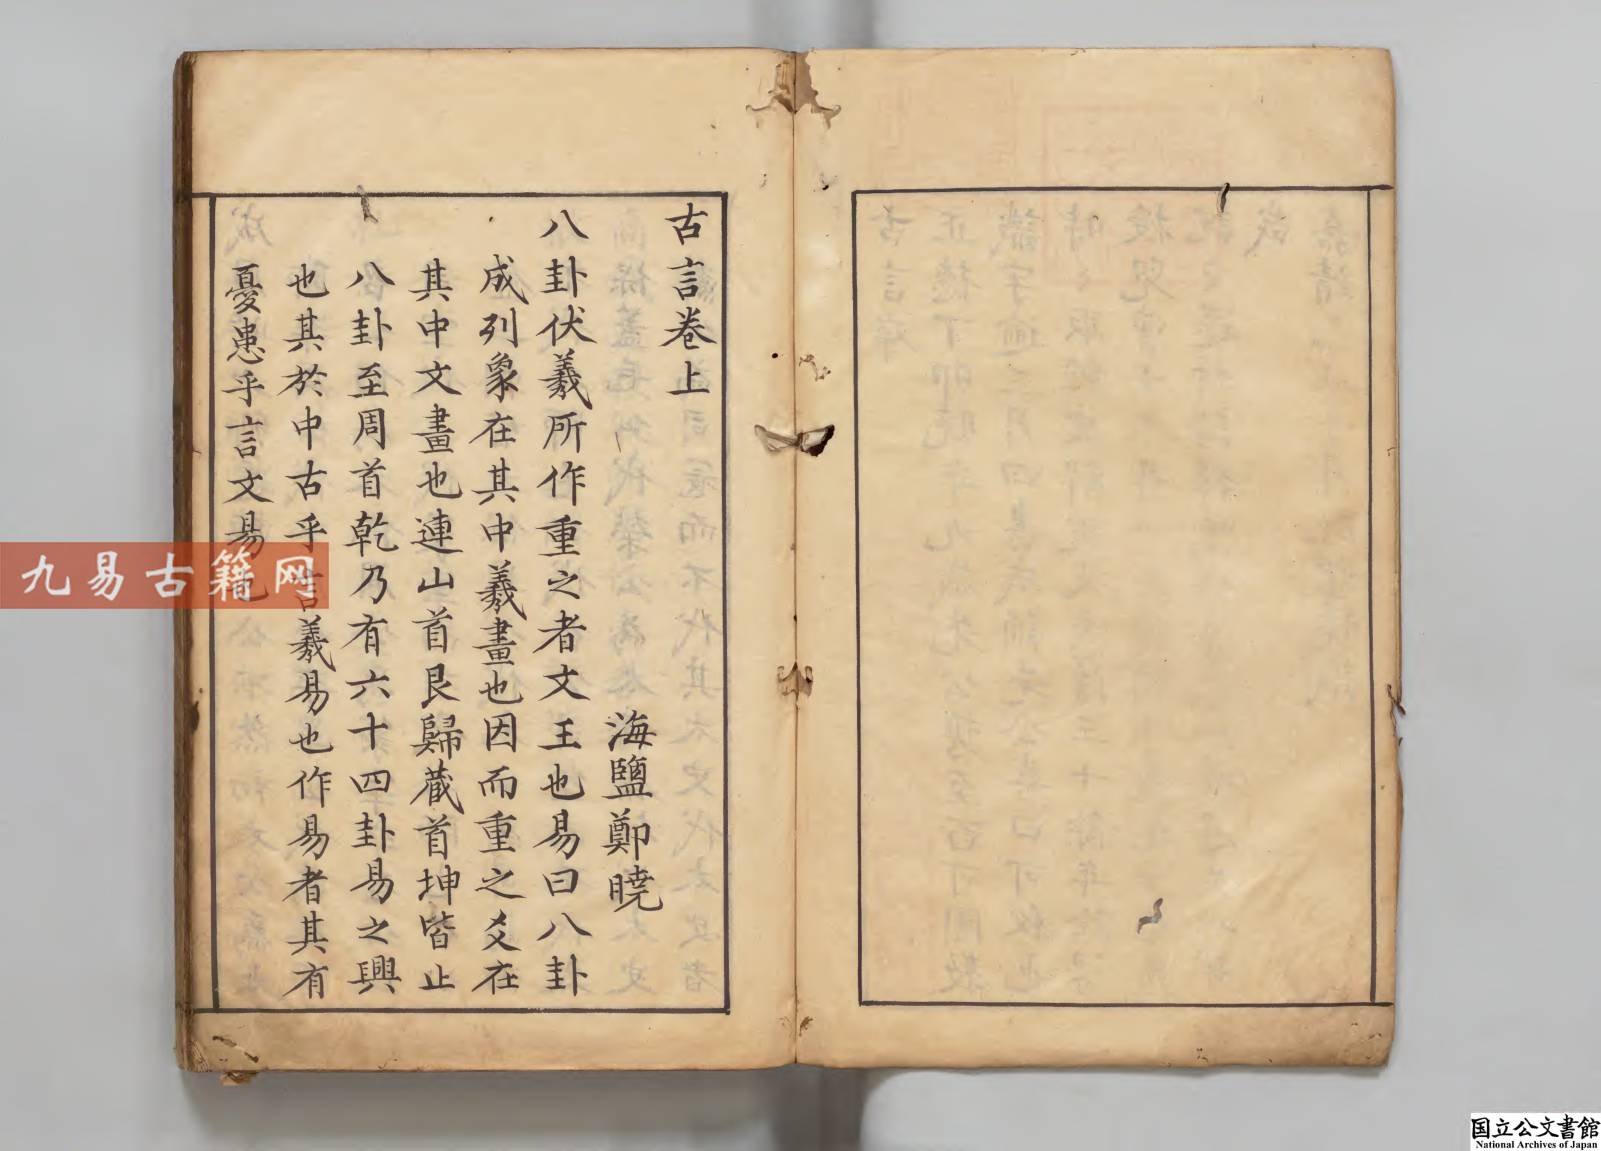 古言卷上
海鹽鄭曉
八卦伏羲所作重之者文王也易曰八卦
成列象在其中羲畫也因而重之爻在
其中文畫也連山首艮歸藏首坤皆止
八卦至周首乾乃有六十四卦易之興
也其於中古乎言羲易也作易者其有
憂患乎言文易也
九易古籍网
国立公文書館
National Archives of Japan